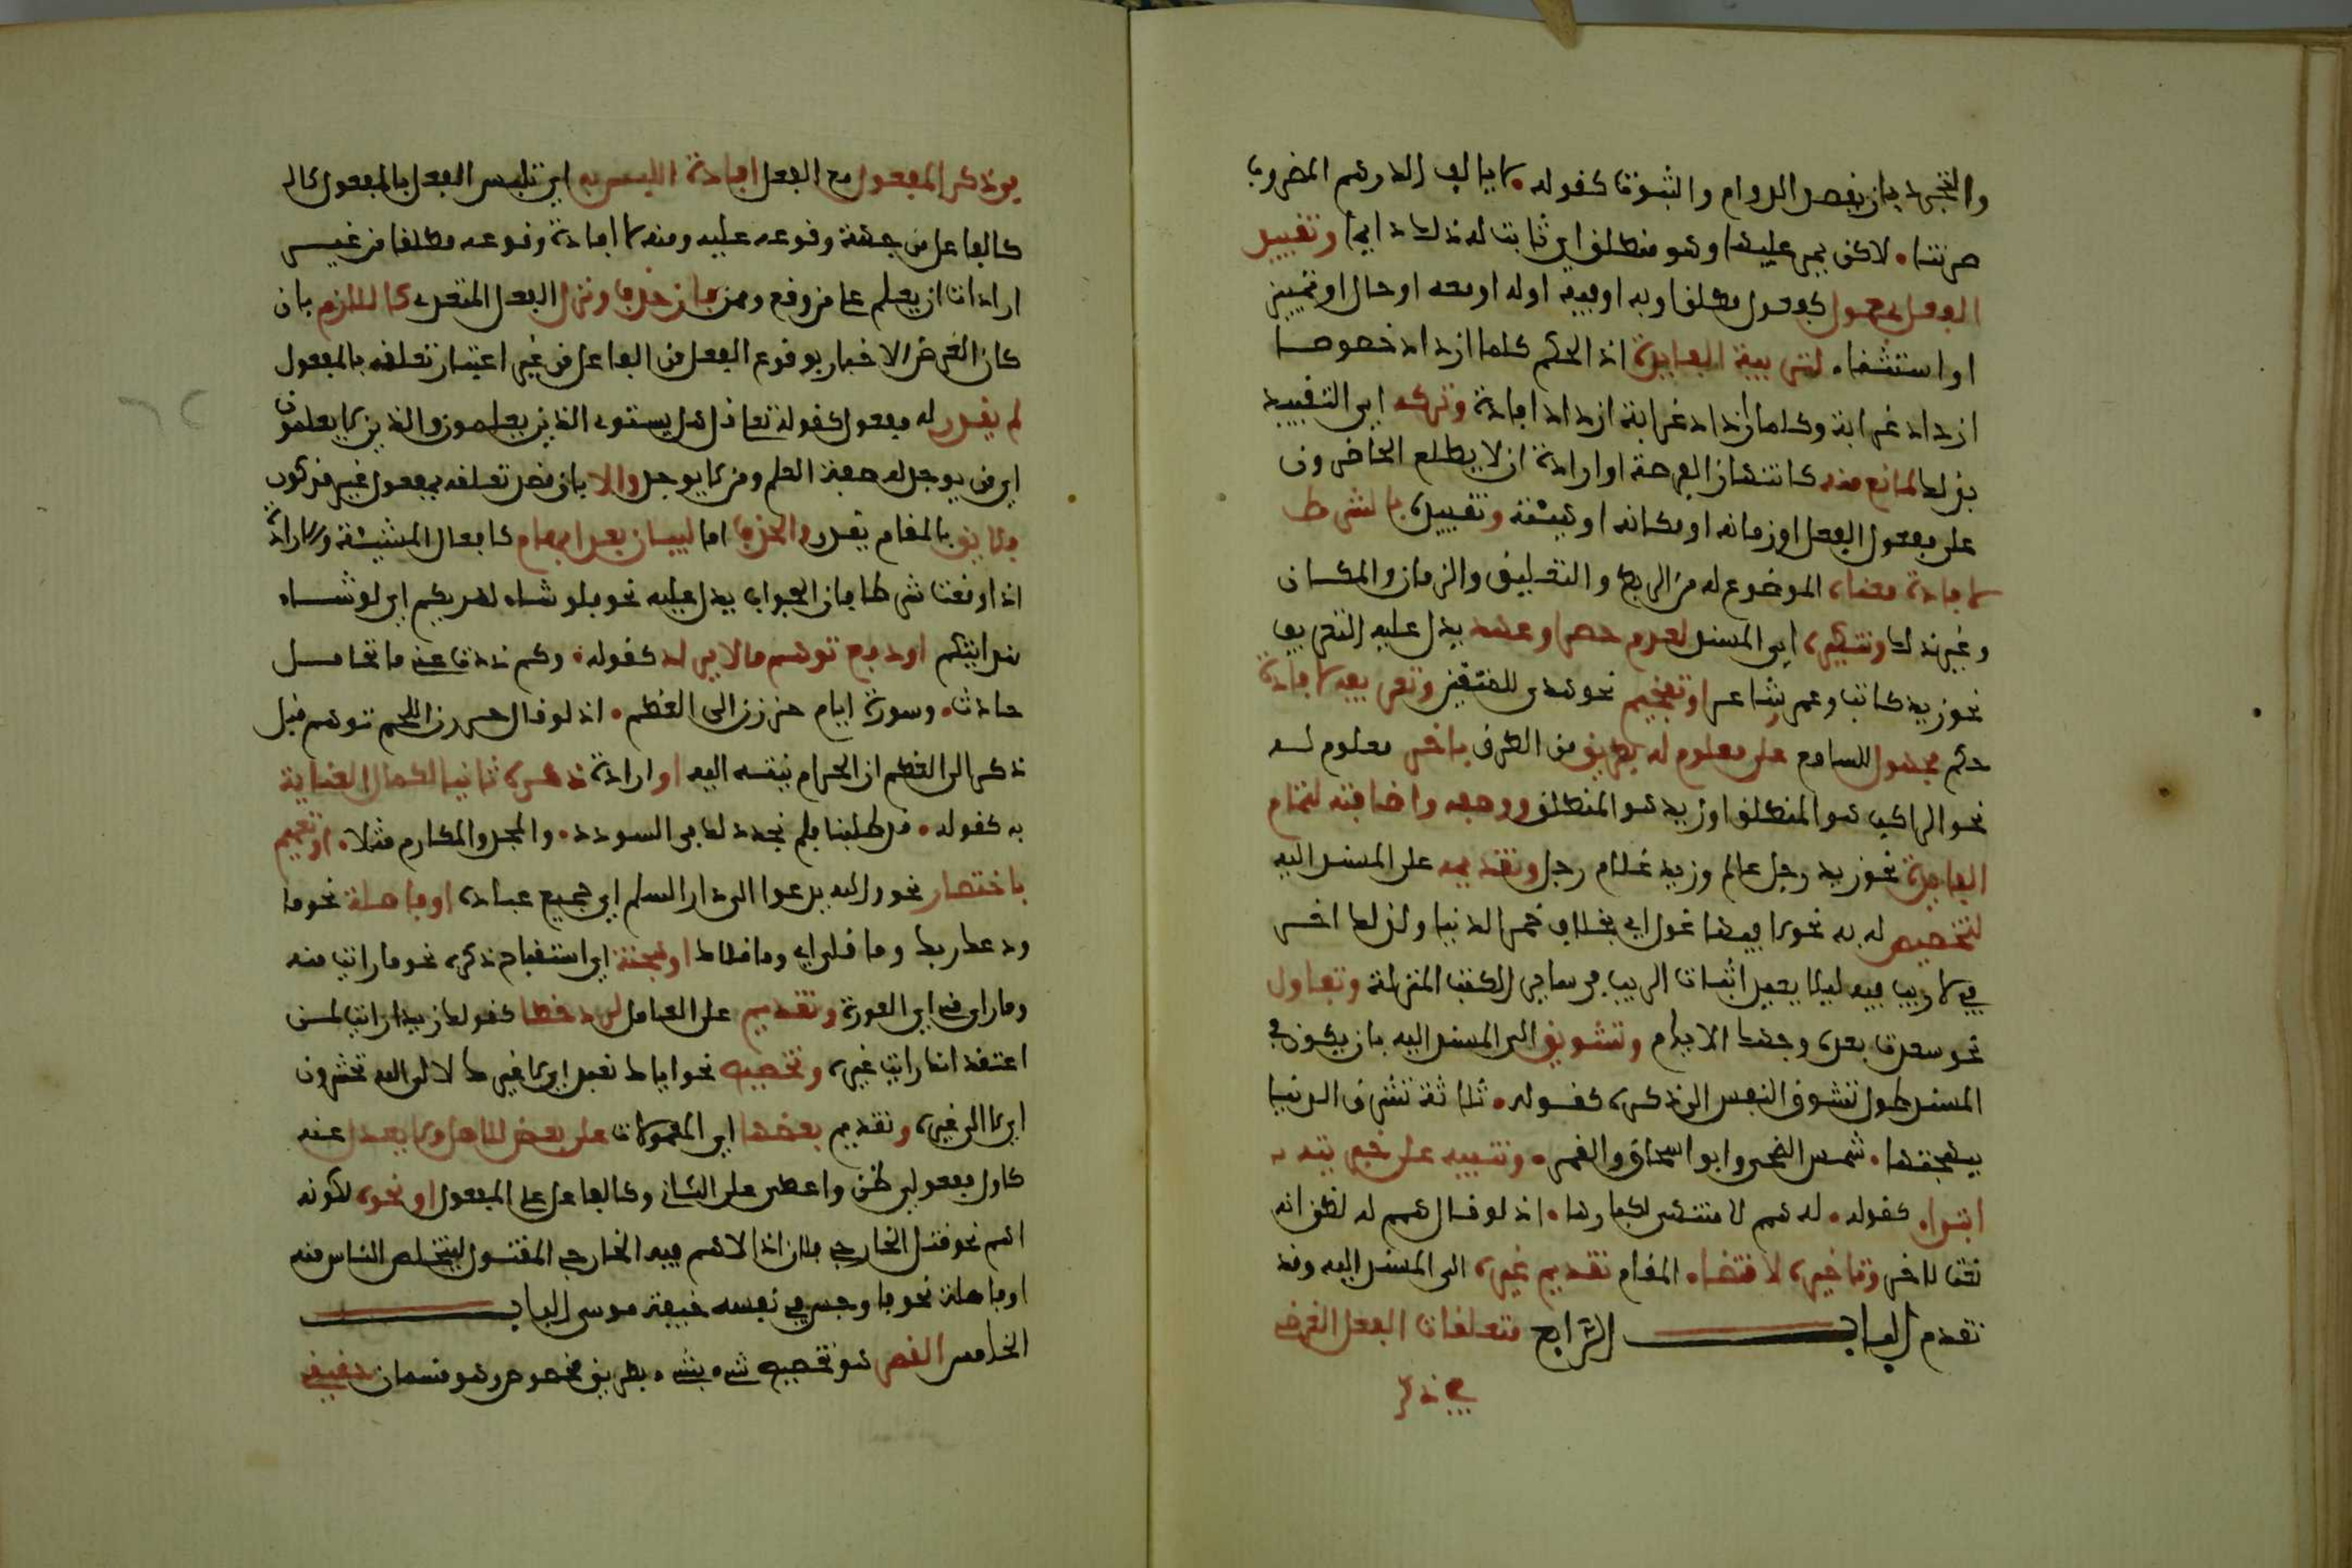 والتجدد بان يقصد الدوام والثبوت كقوله • لا يالف الدرهم المضروب
صرتنا • لاكن يمر عليها وهو منطلق اي ثابت له ذلك دايما وتقييد
الفعل بمعمول كمفعول مطلق او به او فيه او له او معه او حال او تمييز
او استثناء لتربية الفايدة اذ الحكم كلما ازداد خصوصا
ازداد غرابة وكلما ازداد غرابة ازداد افادة وتركه اي التقييد
بذلك لمانع منه كانتهاز الفرصة او ارادة ان لا يطلع الحاضرون
على مفعول الفعل او زمانه او مكانه او هيئته وتقييده بالشرط
لافادة معناه الموضوع له من الربط والتعليق والزمان والمكان
وغير ذلك وتنكيره اي المسند لعدم حصر او عهد يدل عليه التعريف
نحو زيد كاتب وعمرو شاعر او تفخيم نحو هدى للمتقين وتعريفه لافادة
حكم مجهول للسامع على معلوم له بطريق من الطرق باخر معلوم له
نحو الراكب هو المنطلق او زيد هو المنطلق ووصفه واضافته لتمام
الفايدة نحو زيد رجل عالم وزيد غلام رجل وتقديمه على المسند اليه
لتخصيص له به نحو لا فيها غول اي بخلاف خمر الدنيا ولذلك اخر
في لا ريب فيه ليلا يفيد اثبات الريب في ساير الكتب المنزلة وتفاول
نحو سعدت بعده وجهك الايام وتشويق الى المسند اليه بان يكون في
المسند طول تتشوق النفس الى ذكره كقوله • ثلاثة تشرق الدنيا
ببهجتها • شمس الضحى وابو اسحاق والقمر • وتنبيه على خبريته
ابتداء كقوله • له همم لا منتهى لكبارها • اذ لو قال همم له لظن انه
نعتا لا خبر وتاخيره لاقتضاء المقام تقديم غيره اي المسند اليه وقد
تقدم الباب الرابع متعلقات الفعل الغرض
في ذكر
في ذكر المفعول مع الفعل افادة التلبس به اي تلبس الفعل بالمفعول كالـ
كالفاعل من جهة وقوعه عليه ومنه لا افادة وقوعه مطلقا من غير
ارادة ان يعلم على من وقع وممن فان حذف ونزل الفعل المتعدي كاللازم بان
كان الغرض الاخبار بوقوع الفعل من الفاعل من غير اعتبار تعلقه بالمفعول
لم يقدر له مفعول كقوله تعلى قل هل يستوي الذين يعلمون والذين لا يعلمون
اي من يوجد له صفة العلم ومن لا يوجد والا بان قصد تعلقه بمفعول غير مذكور
فلايق بالمقام يقدر والحذف اما لبيان بعد ابهام كافعال المشيئة والارادة
اذا وقعت شرطا فان الجواب يدل عليه نحو فلو شاء لهديكم اي لو شاء
هدايتكم او دفع توهم ما لا يراد كقوله • وكم ذدت عني من تحامل
حادث • وسورة ايام حززن الى العظم • اذ لو قال حززن اللحم توهم قبل
ذكر الى العظم ان الحز لم ينته اليه او ارادة ذكره ثانيا لكمال العناية
به كقوله • قد طلبنا فلم نجد لك في السودد • والمجد والمكارم مثلا • او تعميم
باختصار نحو والله يدعوا الى دار السلم اي جميع عباده او فاصلة نحو ما
ودعك ربك وما قلى اي وما قلاك او هجنة اي استقباح ذكره نحو ما رايت منه
وما راى مني اي العورة وتقديمه على العامل لرد خطا كقولك زيدا رايت لمن
اعتقد انك رايت غيره وتخصيصه نحو اياك نعبد اي لا غيرك لالى الله تحشرون
اي لا الى غيره وتقديم بعضها اي المعمولات على بعض للاصل ولا يعدل عنه
كاول مفعولي ظن واعطى على الثاني وكالفاعل على المفعول او نحوه لكونه
اهم نحو قتل الخارجي فلان اذ الاهم فيه الخارجي المقتول ليتخلص الناس منه
او فاصلة نحو فاوجس في نفسه خيفة موسى الباب
الخامس القصر هو تخصيص شيء بشيء بطريق مخصوص وهو قسمان حقيقي